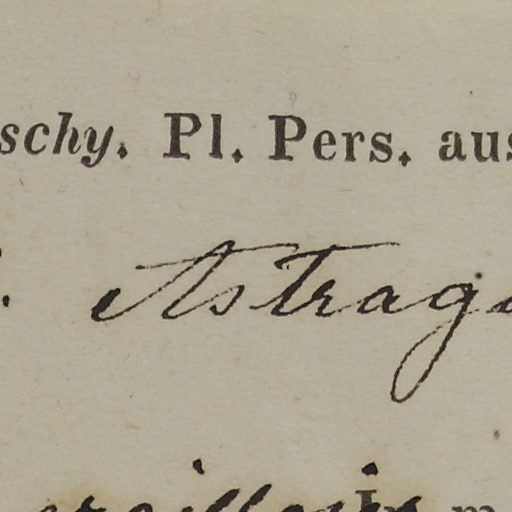 schy. Pl. Pers. aus
Astrag
In m